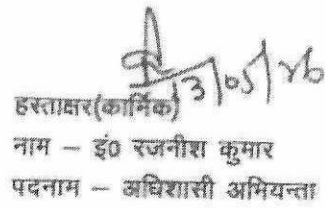 13/05/26
हस्ताक्षर(कार्मिक)
नाम – इं० रजनीश कुमार
पदनाम – अधिशासी अभियन्ता